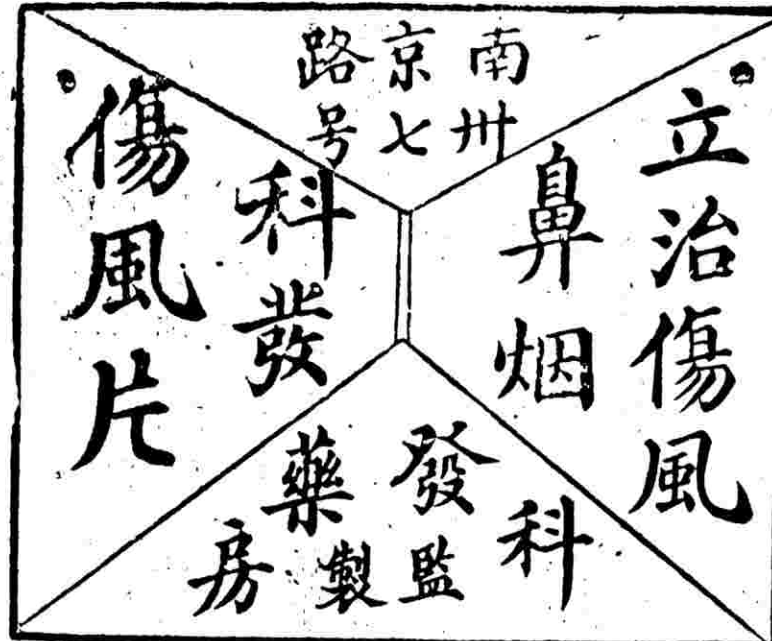 南京路
卅七号
立治傷風
鼻烟
科發
傷風片
科發藥房
監製